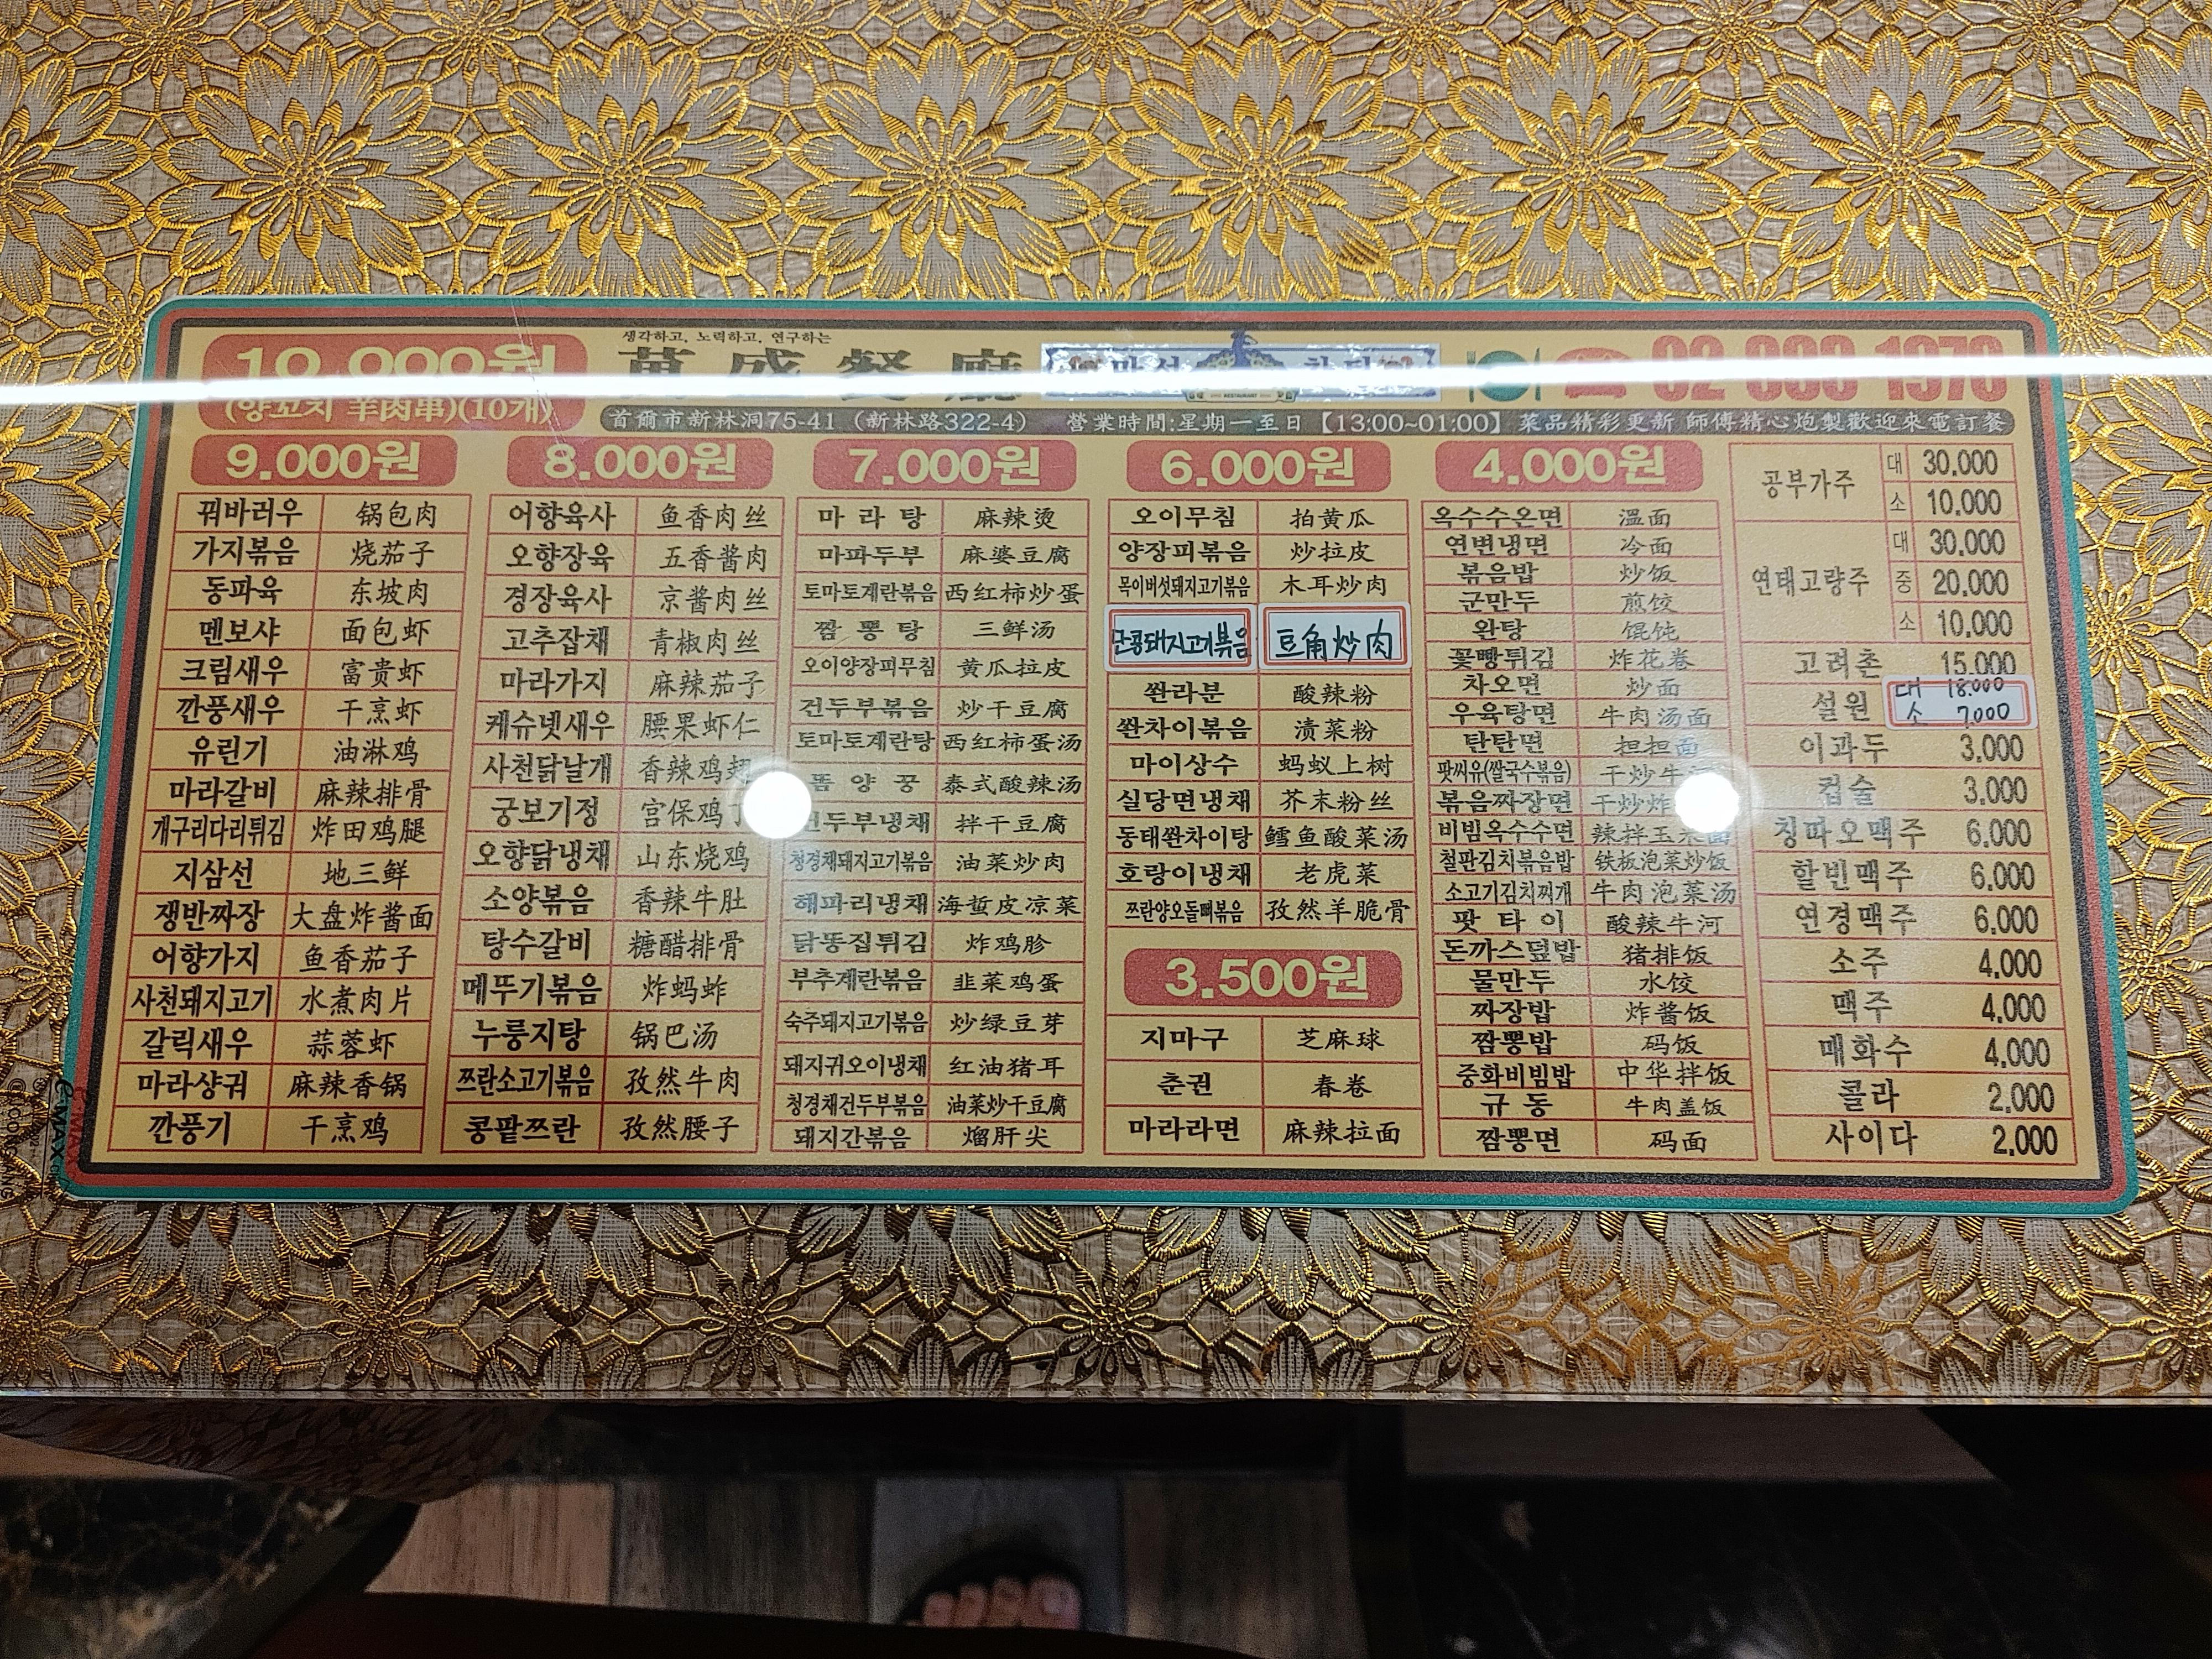 10.000원
(양꼬치 羊肉串)(10개)
생각하고, 노력하고, 연구하는
萬盛餐廳
首爾市新林洞75-41 (新林路322-4) 營業時間:星期一至日【13:00~01:00】菜品精彩更新 師傅精心炮製歡迎來電訂餐
9.000원
꿔바러우 锅包肉
가지볶음 烧茄子
동파육 东坡肉
멘보샤 面包虾
크림새우 富贵虾
깐풍새우 干烹虾
유린기 油淋鸡
마라갈비 麻辣排骨
개구리다리튀김 炸田鸡腿
지삼선 地三鲜
쟁반짜장 大盘炸酱面
어향가지 鱼香茄子
사천돼지고기 水煮肉片
갈릭새우 蒜蓉虾
마라샹궈 麻辣香锅
깐풍기 干烹鸡
8.000원
어향육사 鱼香肉丝
오향장육 五香酱肉
경장육사 京酱肉丝
고추잡채 青椒肉丝
마라가지 麻辣茄子
캐슈넷새우 腰果虾仁
사천닭날개 香辣鸡翅
궁보기정 宫保鸡
오향닭냉채 山东烧鸡
소양볶음 香辣牛肚
탕수갈비 糖醋排骨
메뚜기볶음 炸蚂蚱
누룽지탕 锅巴汤
쯔란소고기볶음 孜然牛肉
콩팥쯔란 孜然腰子
7.000원
마라탕 麻辣烫
마파두부 麻婆豆腐
토마토계란볶음 西红柿炒蛋
짬뽕탕 三鲜汤
오이양장피무침 黄瓜拉皮
건두부볶음 炒干豆腐
토마토계란탕 西红柿蛋汤
똠양꿍 泰式酸辣汤
건두부냉채 拌干豆腐
청경채돼지고기볶음 油菜炒肉
해파리냉채 海蜇皮凉菜
닭똥집튀김 炸鸡胗
부추계란볶음 韭菜鸡蛋
숙주돼지고기볶음 炒绿豆芽
돼지귀오이냉채 红油猪耳
청경채건두부볶음 油菜炒干豆腐
돼지간볶음 熘肝尖
6.000원
오이무침 拍黄瓜
양장피볶음 炒拉皮
목이버섯돼지고기볶음 木耳炒肉
콩돼지고기볶음 豆角炒肉
쏸라분 酸辣粉
쏸차이볶음 渍菜粉
마이상수 蚂蚁上树
실당면냉채 芥末粉丝
동태쏸차이탕 鳕鱼酸菜汤
호랑이냉채 老虎菜
쯔란양오돌뼈볶음 孜然羊脆骨
3.500원
지마구 芝麻球
춘권 春卷
마라라면 麻辣拉面
4.000원
옥수수온면 温面
연변냉면 冷面
볶음밥 炒饭
군만두 煎饺
완탕 馄饨
꽃빵튀김 炸花卷
차오면 炒面
우육탕면 牛肉汤面
탄탄면 担担面
팟씨유(쌀국수볶음) 干炒牛
볶음짜장면 干炒炸
비빔옥수수면 辣拌玉米面
철판김치볶음밥 铁板泡菜炒饭
소고기김치찌개 牛肉泡菜汤
팟타이 酸辣牛河
돈까스덮밥 猪排饭
물만두 水饺
짜장밥 炸酱饭
짬뽕밥 码饭
중화비빔밥 中华拌饭
규동 牛肉盖饭
짬뽕면 码面
공부가주 대 30,000
소 10,000
연태고량주 대 30,000
중 20,000
소 10,000
고려촌 15,000
설원 대 18.000
소 7.000
이과두 3,000
컵술 3,000
칭따오맥주 6,000
할빈맥주 6,000
연경맥주 6,000
소주 4,000
맥주 4,000
매화수 4,000
콜라 2,000
사이다 2,000